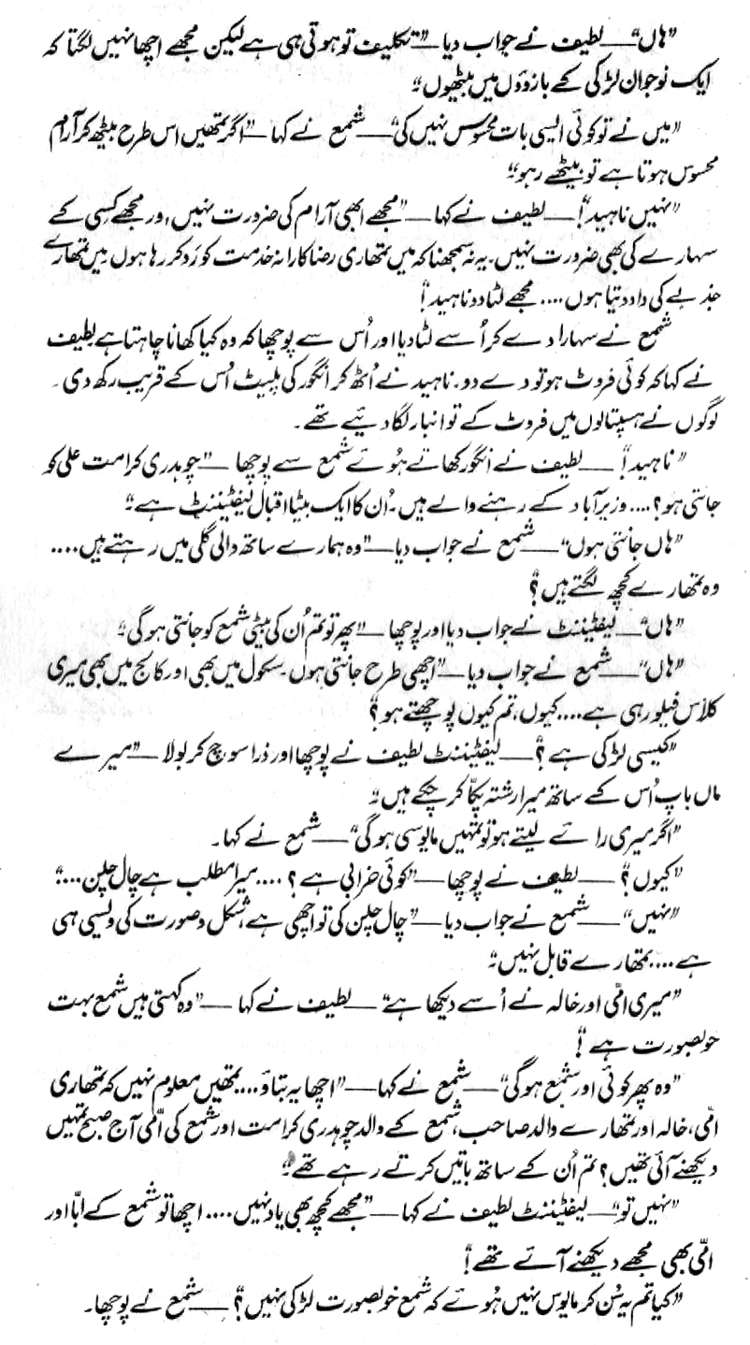 ”ہاں“ — لطیف نے جواب دیا — ”تکلیف تو ہوتی ہی ہے لیکن مجھے اچھا نہیں لگتا کہ
ایک نوجوان لڑکی کے بازوؤں میں بیٹھوں“۔
”میں نے تو کوئی ایسی بات محسوس نہیں کی“ — شمع نے کہا — ”اگر تمھیں اس طرح بیٹھ کر آرام
محسوس ہوتا ہے تو بیٹھے رہو“۔
”نہیں ناہید!“ — لطیف نے کہا — ”مجھے ابھی آرام کی ضرورت نہیں، اور مجھے کسی کے
سہارے کی بھی ضرورت نہیں۔ یہ نہ سمجھنا کہ میں تمھاری رضاکارانہ خدمت کو رد کر رہا ہوں میں تمھارے
جذبے کی داد دیتا ہوں .... مجھے لٹا دو ناہید!“
شمع نے سہارا دے کر اُسے لٹا دیا اور اُس سے پوچھا کہ وہ کیا کھانا چاہتا ہے لطیف
نے کہا کہ کوئی فروٹ ہو تو دے دو۔ ناہید نے اُٹھ کر انگور کی پلیٹ اُس کے قریب رکھ دی۔
لوگوں نے ہسپتالوں میں فروٹ کے تو انبار لگا دیئے تھے۔
”ناہید!“ — لطیف نے انگور کھاتے ہُوئے شمع سے پوچھا — ”چوہدری کرامت علی کو
جانتی ہو؟.... وزیر آباد کے رہنے والے ہیں۔ اُن کا ایک بیٹا اقبال لیفٹیننٹ ہے“۔
”ہاں جانتی ہوں“ — شمع نے جواب دیا — ”وہ ہمارے ساتھ والی گلی میں رہتے ہیں ....
وہ تمھارے کچھ لگتے ہیں؟“
”ہاں“ — لیفٹیننٹ نے جواب دیا اور پوچھا — ”پھر تو تم اُن کی بیٹی شمع کو جانتی ہو گی“۔
”ہاں“ — شمع نے جواب دیا — ”اچھی طرح جانتی ہوں۔ سکول میں بھی اور کالج میں بھی میری
کلاس فیلو رہی ہے .... کیوں، تم کیوں پوچھتے ہو؟“
”کیسی لڑکی ہے؟“ — لیفٹیننٹ لطیف نے پوچھا اور ذرا سوچ کر بولا — ”میرے
ماں باپ اُس کے ساتھ میرا رشتہ پکا کر چکے ہیں“۔
”اگر میری رائے لیتے ہو تو تمہیں مایوسی ہو گی“ — شمع نے کہا۔
”کیوں؟“ — لطیف نے پوچھا — ”کوئی خرابی ہے؟ .... میرا مطلب ہے چال چلن ....“
”نہیں“ — شمع نے جواب دیا — ”چال چلن کی تو اچھی ہے، شکل و صورت کی ویسی ہی
ہے .... تمھارے قابل نہیں“۔
”میری امّی اور خالہ نے اُسے دیکھا ہے“ — لطیف نے کہا — ”وہ کہتی ہیں شمع بہت
خوبصورت ہے!“
”وہ پھر کوئی اور شمع ہو گی“ — شمع نے کہا — ”اچھا یہ بتاؤ .... تمھیں معلوم نہیں کہ تمھاری
امّی، خالہ اور تمھارے والد صاحب، شمع کے والد چوہدری کرامت اور شمع کی امّی آج صبح تمہیں
دیکھنے آئی تھیں؟ تم اُن کے ساتھ باتیں کرتے رہے تھے“۔
”نہیں تو“ — لیفٹیننٹ لطیف نے کہا — ”مجھے کچھ بھی یاد نہیں .... اچھا تو شمع کے ابّا اور
امّی بھی مجھے دیکھنے آئے تھے!“
”کیا تم یہ سُن کر مایوس نہیں ہُوئے کہ شمع خوبصورت لڑکی نہیں؟“ — شمع نے پوچھا۔